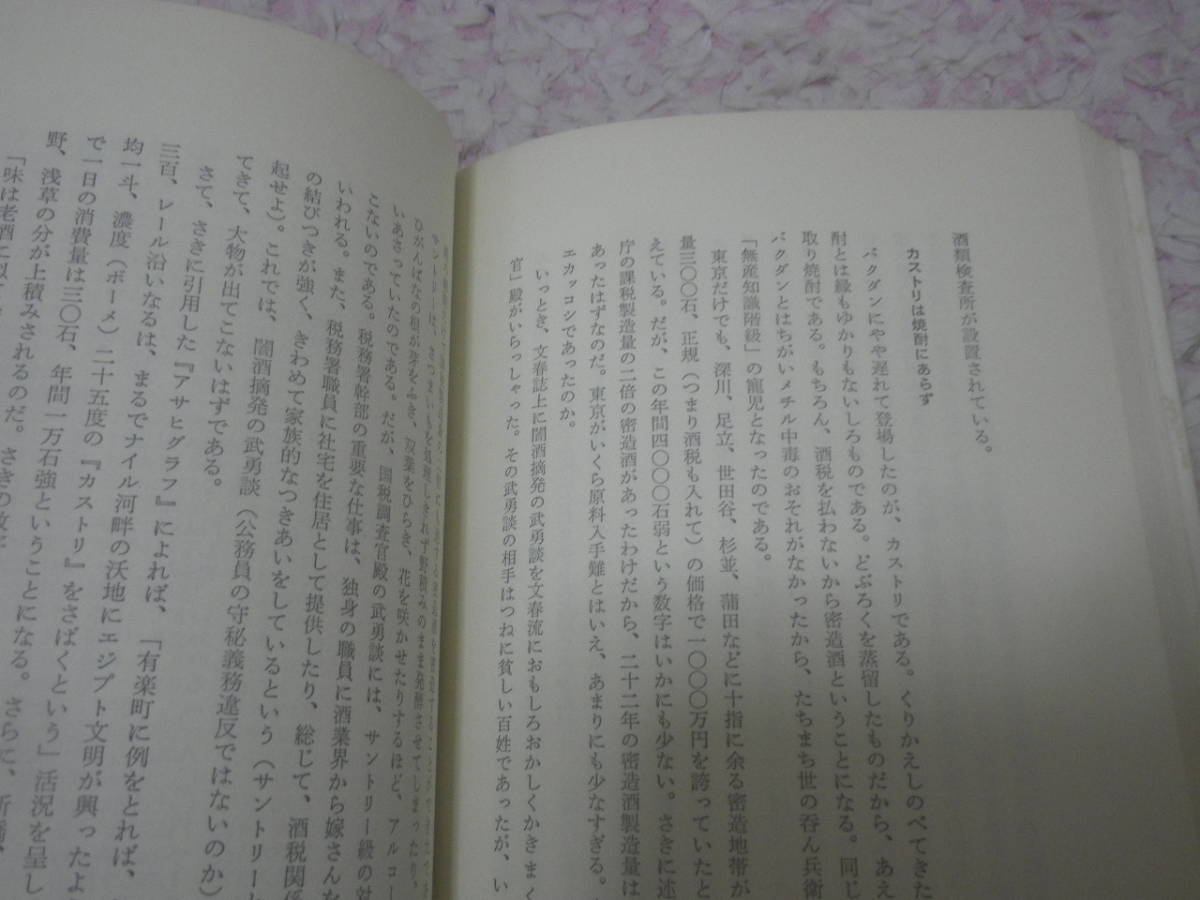 酒類検査所が設置されている。
カストリは焼酎にあらず
バクダンにやや遅れて登場したのが、カストリである。くりかえしのべてきた
酎とは縁もゆかりもないしろものである。どぶろくを蒸留したものだから、あえ
取り焼酎である。もちろん、酒税を払わないから密造酒ということになる。同じ
バクダンとはちがいメチル中毒のおそれがなかったから、たちまち世の呑ん兵衛
「無産知識階級」の寵児となったのである。
東京だけでも、深川、足立、世田谷、杉並、蒲田などに十指に余る密造地帯が
量三〇〇石、正規（つまり酒税も入れて）の価格で一〇〇〇万円を誇っていたと
えている。だが、この年間四〇〇〇石弱という数字はいかにも少ない。さきに述
庁の課税製造量の二倍の密造酒があったわけだから、二十二年の密造酒製造量は
あったはずなのだ。東京がいくら原料入手難とはいえ、あまりにも少なすぎる。
エカッコシであったのか。
いっとき、文春誌上に闇酒摘発の武勇談を文春流におもしろおかしくかきまく
官」殿がいらっしゃった。その武勇談の相手はつねに貧しい百姓であったが、い
サントリーは、さつまいもを処理しきれず野積みのまま発酵させてしまったり、
ひがんばなの根が芽をふき、双葉をひらき、花を咲かせたりするほど、アルコー
いあさっていたのである。だが、国税調査官殿の武勇談には、サントリー級の対
こないのである。税務署幹部の重要な仕事は、独身の職員に酒業界から嫁さんを
いわれる。また、税務署職員に社宅を住居として提供したり、総じて、酒税関係
の結びつきが強く、きわめて家族的なつきあいをしているという（サントリー
起せよ）。これでは、闇酒摘発の武勇談（公務員の守秘義務違反ではないのか）
てきて、大物が出てこないはずである。
さて、さきに引用した『アサヒグラフ』によれば、「有楽町に例をとれば、
三百、レール沿いなるは、まるでナイル河畔の沃地にエジプト文明が興ったよ
均一斗、濃度（ボーメ）二十五度の『カストリ』をさばくという」活況を呈し
で一日の消費量は三〇石、年間一万石強ということになる。さらに、新橋、
野、浅草の分が上積みされるのだ。さきの
「味は老酒に似て